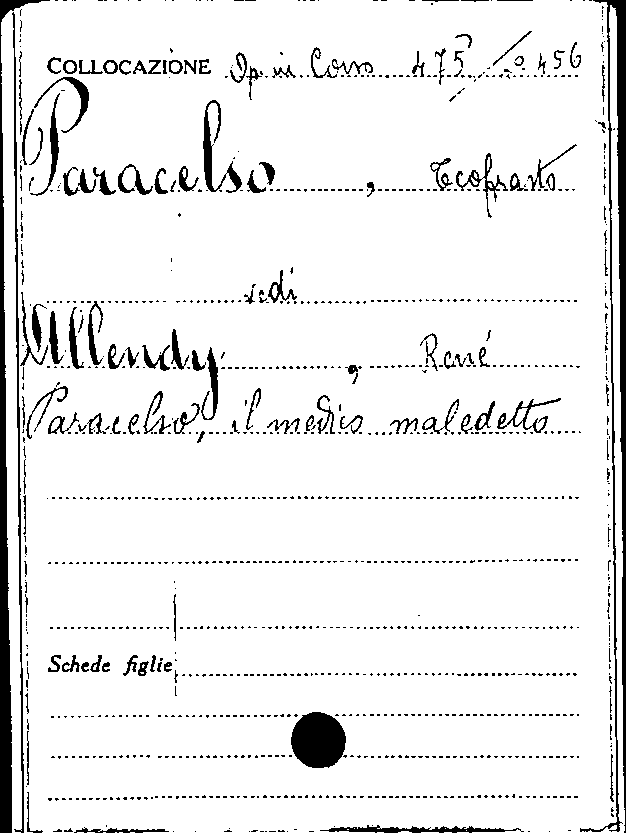 COLLOCAZIONE Op. in Corso 475 / 456
Paracelso, Teofrasto
vedi
Allendy, René
Paracelso, il medico maledetto
Schede figlie